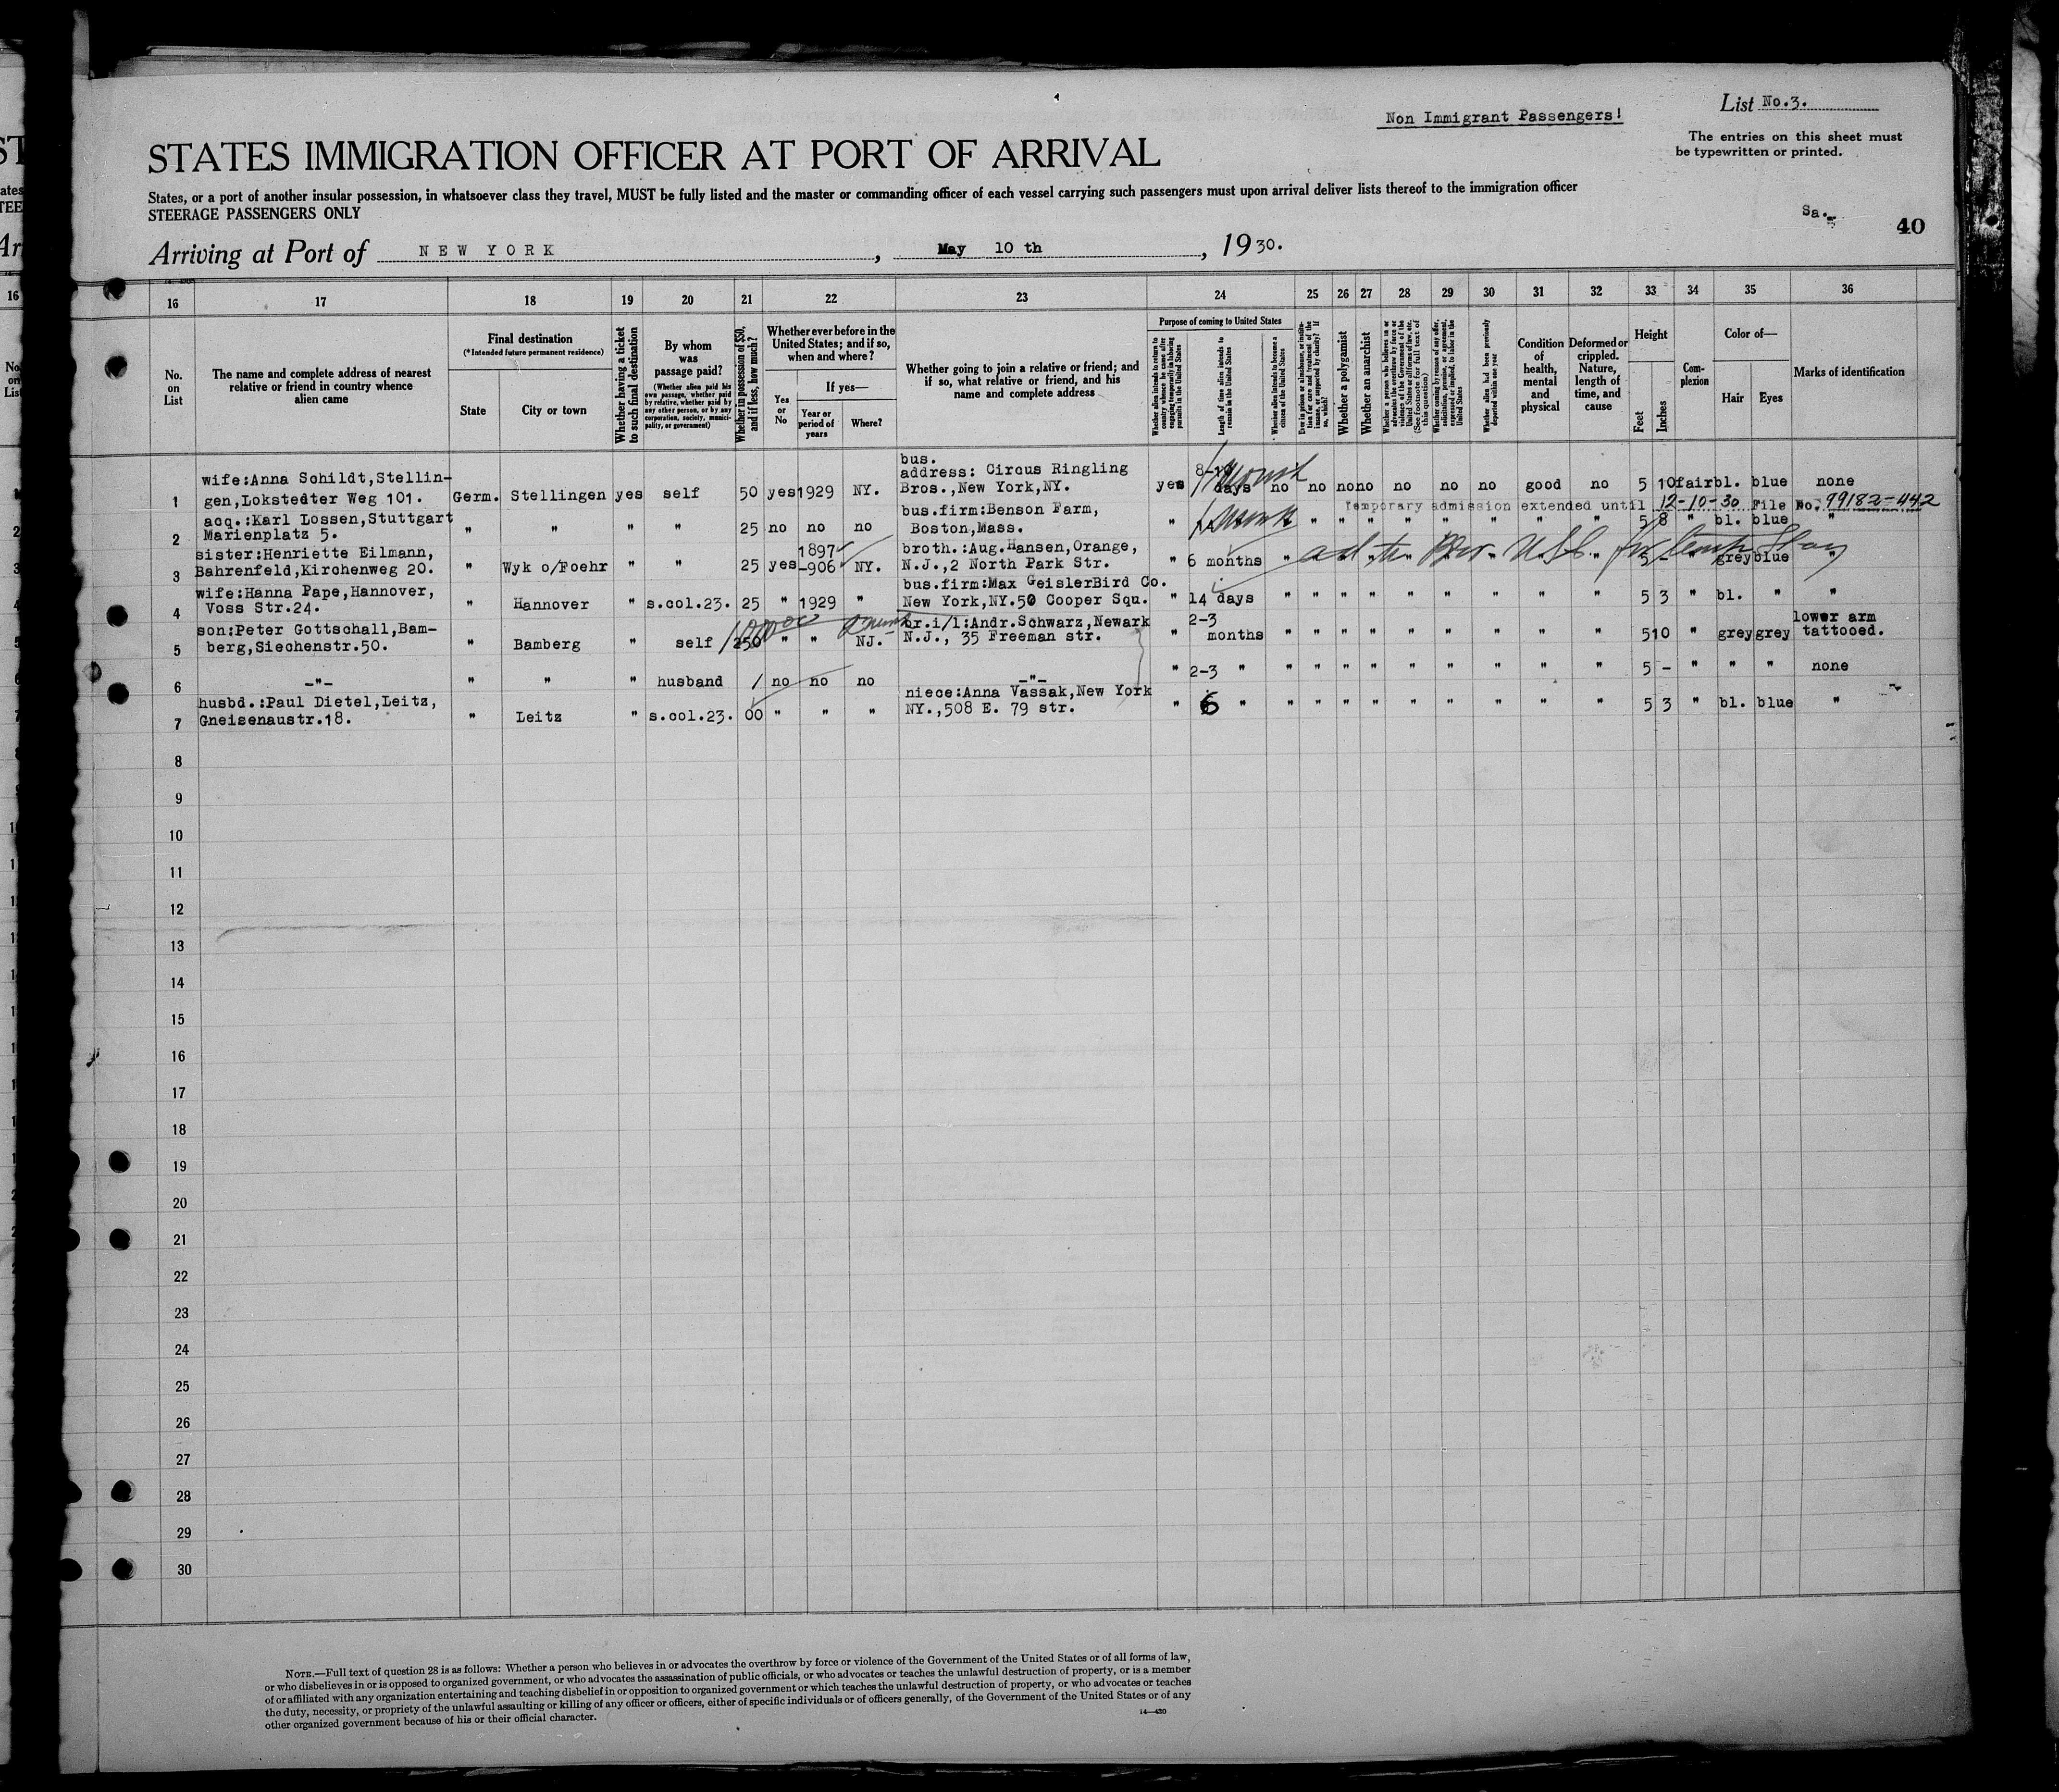 List No.3.
Non Immigrant Passengers!
The entries on this sheet must
be typewritten or printed.
STATES IMMIGRATION OFFICER AT PORT OF ARRIVAL
States, or a port of another insular possession, in whatsoever class they travel, MUST be fully listed and the master or commanding officer of each vessel carrying such passengers must upon arrival deliver lists thereof to the immigration officer
STEERAGE PASSENGERS ONLY
Sa.
40
Arriving at Port of NEW YORK, May 10 th, 1930.
16 17 18 19 20 21 22 23 24 25 26 27 28 29 30 31 32 33 34 35 36
No. on List
The name and complete address of nearest relative or friend in country whence alien came
Final destination
(*Intended future permanent residence)
State
City or town
Whether having a ticket to such final destination
By whom was passage paid?
(Whether alien paid his own passage, whether paid by relative, whether paid by any other person, or by any corporation, society, municipality, or government)
Whether in possession of $50, and if less, how much?
Whether ever before in the United States; and if so, when and where?
Yes or No
If yes—
Year or period of years
Where?
Whether going to join a relative or friend; and if so, what relative or friend, and his name and complete address
Purpose of coming to United States
Whether alien intends to return to country whence he came after engaging temporarily in laboring pursuits in the United States
Length of time alien intends to remain in the United States
Whether alien intends to become a citizen of the United States
Whether a polygamist
Whether an anarchist
Whether alien had been previously deported within one year
Condition of health, mental and physical
Deformed or crippled. Nature, length of time, and cause
Height
Feet
Inches
Complexion
Color of—
Hair
Eyes
Marks of identification
1 wife:Anna Schildt,Stellin-
gen,Lokstedter Weg 101. Germ. Stellingen yes self 50 yes 1929 NY. bus.
address: Circus Ringling
Bros.,New York,NY. yes days no no no no no no no good no 5 10 fair bl. blue none
Temporary admission extended until 12-10-30 File No. 99182-442
2 acq.:Karl Lossen,Stuttgart
Marienplatz 5. " " " " 25 no no no bus.firm:Benson Farm,
Boston,Mass. " " " " " " " " " " 5 8 " bl. blue "
3 sister:Henriette Eilmann,
Bahrenfeld,Kirchenweg 20. " Wyk o/Foehr " " 25 yes 1897
-906 NY. broth.:Aug.Hansen,Orange,
N.J.,2 North Park Str. " 6 months " 5 - grey blue "
4 wife:Hanna Pape,Hannover,
Voss Str.24. " Hannover " s.col.23. 25 " 1929 " bus.firm:Max GeislerBird Co.
New York,NY.50 Cooper Squ. " 14 days " " " " " " " " " 5 3 " bl. " "
5 son:Peter Gottschall,Bam-
berg,Siechenstr.50. " Bamberg " self 250 " " NJ. br.i/l:Andr.Schwarz,Newark
N.J., 35 Freeman str. " 2-3
months " " " " " " " " " 5 10 " grey grey lower arm
tattooed.
6 -"- " " " husband / no no no -"- " 2-3 " " " " " " " " " " 5 - " " " none
7 husbd.:Paul Dietel,Leitz,
Gneisenaustr.18. " Leitz " s.col.23. 00 " " " niece:Anna Vassak,New York
NY.,508 E. 79 str. " 6 " " " " " " " " " " 5 3 " bl. blue "
8
9
10
11
12
13
14
15
16
17
18
19
20
21
22
23
24
25
26
27
28
29
30
NOTE.—Full text of question 28 is as follows: Whether a person who believes in or advocates the overthrow by force or violence of the Government of the United States or of all forms of law,
or who disbelieves in or is opposed to organized government, or who advocates the assassination of public officials, or who advocates or teaches the unlawful destruction of property, or is a member
of or affiliated with any organization entertaining and teaching disbelief in or opposition to organized government or which teaches the unlawful destruction of property, or who advocates or teaches
the duty, necessity, or propriety of the unlawful assaulting or killing of any officer or officers, either of specific individuals or of officers generally, of the Government of the United States or of any
other organized government because of his or their official character.
14—430